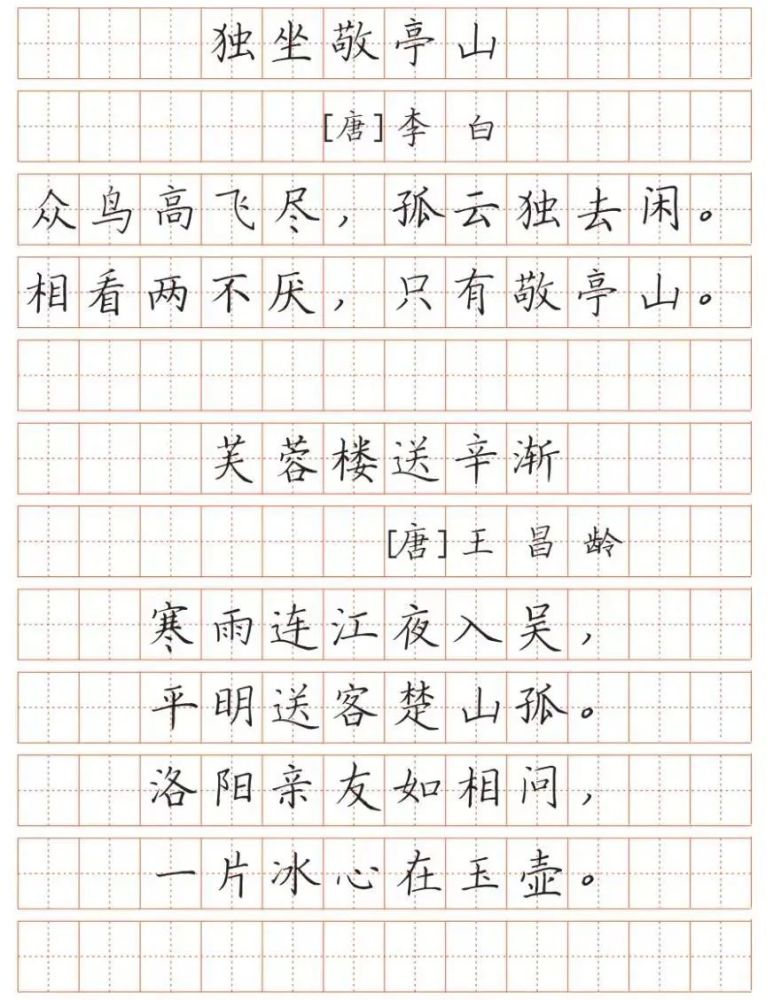 独坐敬亭山
[唐]李白
众鸟高飞尽，孤云独去闲。
相看两不厌，只有敬亭山。
芙蓉楼送辛渐
[唐]王昌龄
寒雨连江夜入吴，
平明送客楚山孤。
洛阳亲友如相问，
一片冰心在玉壶。